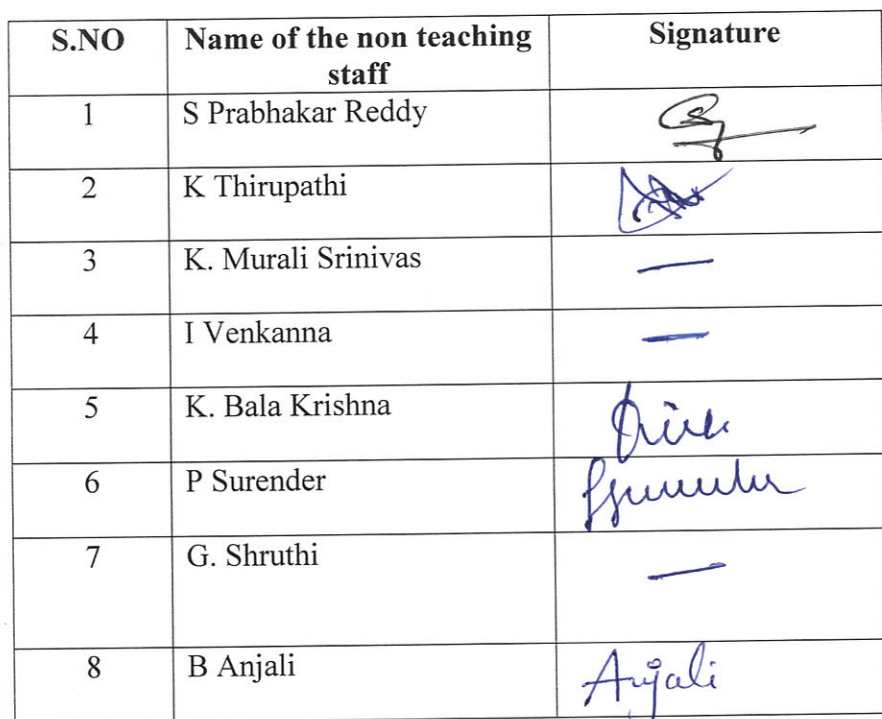 S.NO Name of the non teaching staff Signature
1 S Prabhakar Reddy
2 K Thirupathi
3 K. Murali Srinivas —
4 I Venkanna —
5 K. Bala Krishna
6 P Surender
7 G. Shruthi —
8 B Anjali Anjali